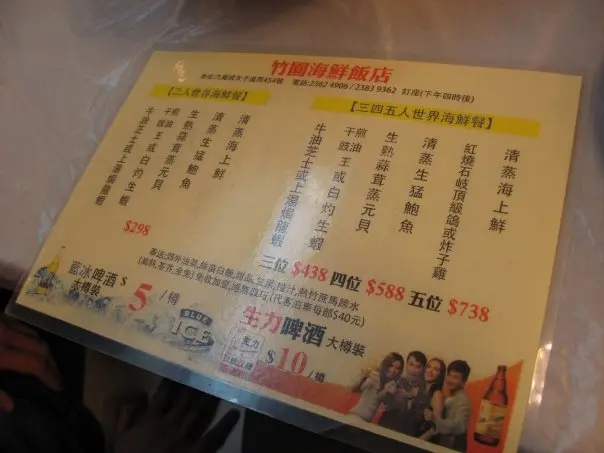 竹園海鮮飯店
電話:2382 4906 / 2383 9362 訂座(下午四時後)
【二人世界海鮮餐】
清蒸海上鮮
清蒸生猛鮑魚
生熟蒜茸蒸元貝
干煎油豉王或白灼生蝦
牛油芝士或上湯焗龍蝦
$298
【三四五人世界海鮮餐】
清蒸海上鮮
紅燒石岐頂級鴿或炸子雞
清蒸生猛鮑魚
生熟蒜茸蒸元貝
干煎油豉王或白灼生蝦
牛油芝士或上湯焗龍蝦
三位 $438 四位 $588 五位 $738
(油熟,茶芥,全免)免收加壹,
(代客泊車每部$40元)
藍冰啤酒 大樽裝 $5/樽
BLUE ICE
生力啤酒 大樽裝 $10/樽
生力